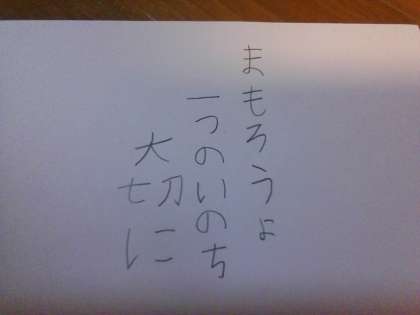 まもろうよ
一つのいのち
大切に